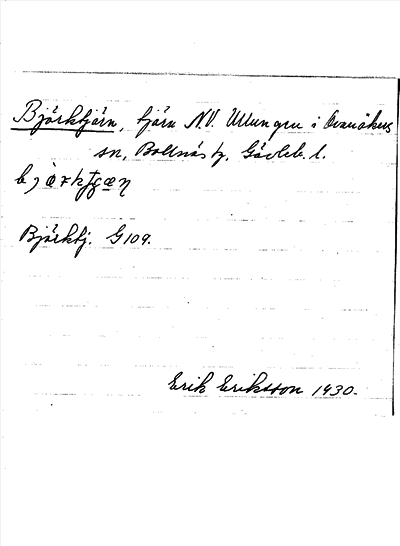 Björktjärn, tjärn N.V. Ullungen i Ovanåkers
sn, Bollnäs tg, Gävleb. l.
Björktj. G 109.
Erik Eriksson 1930.